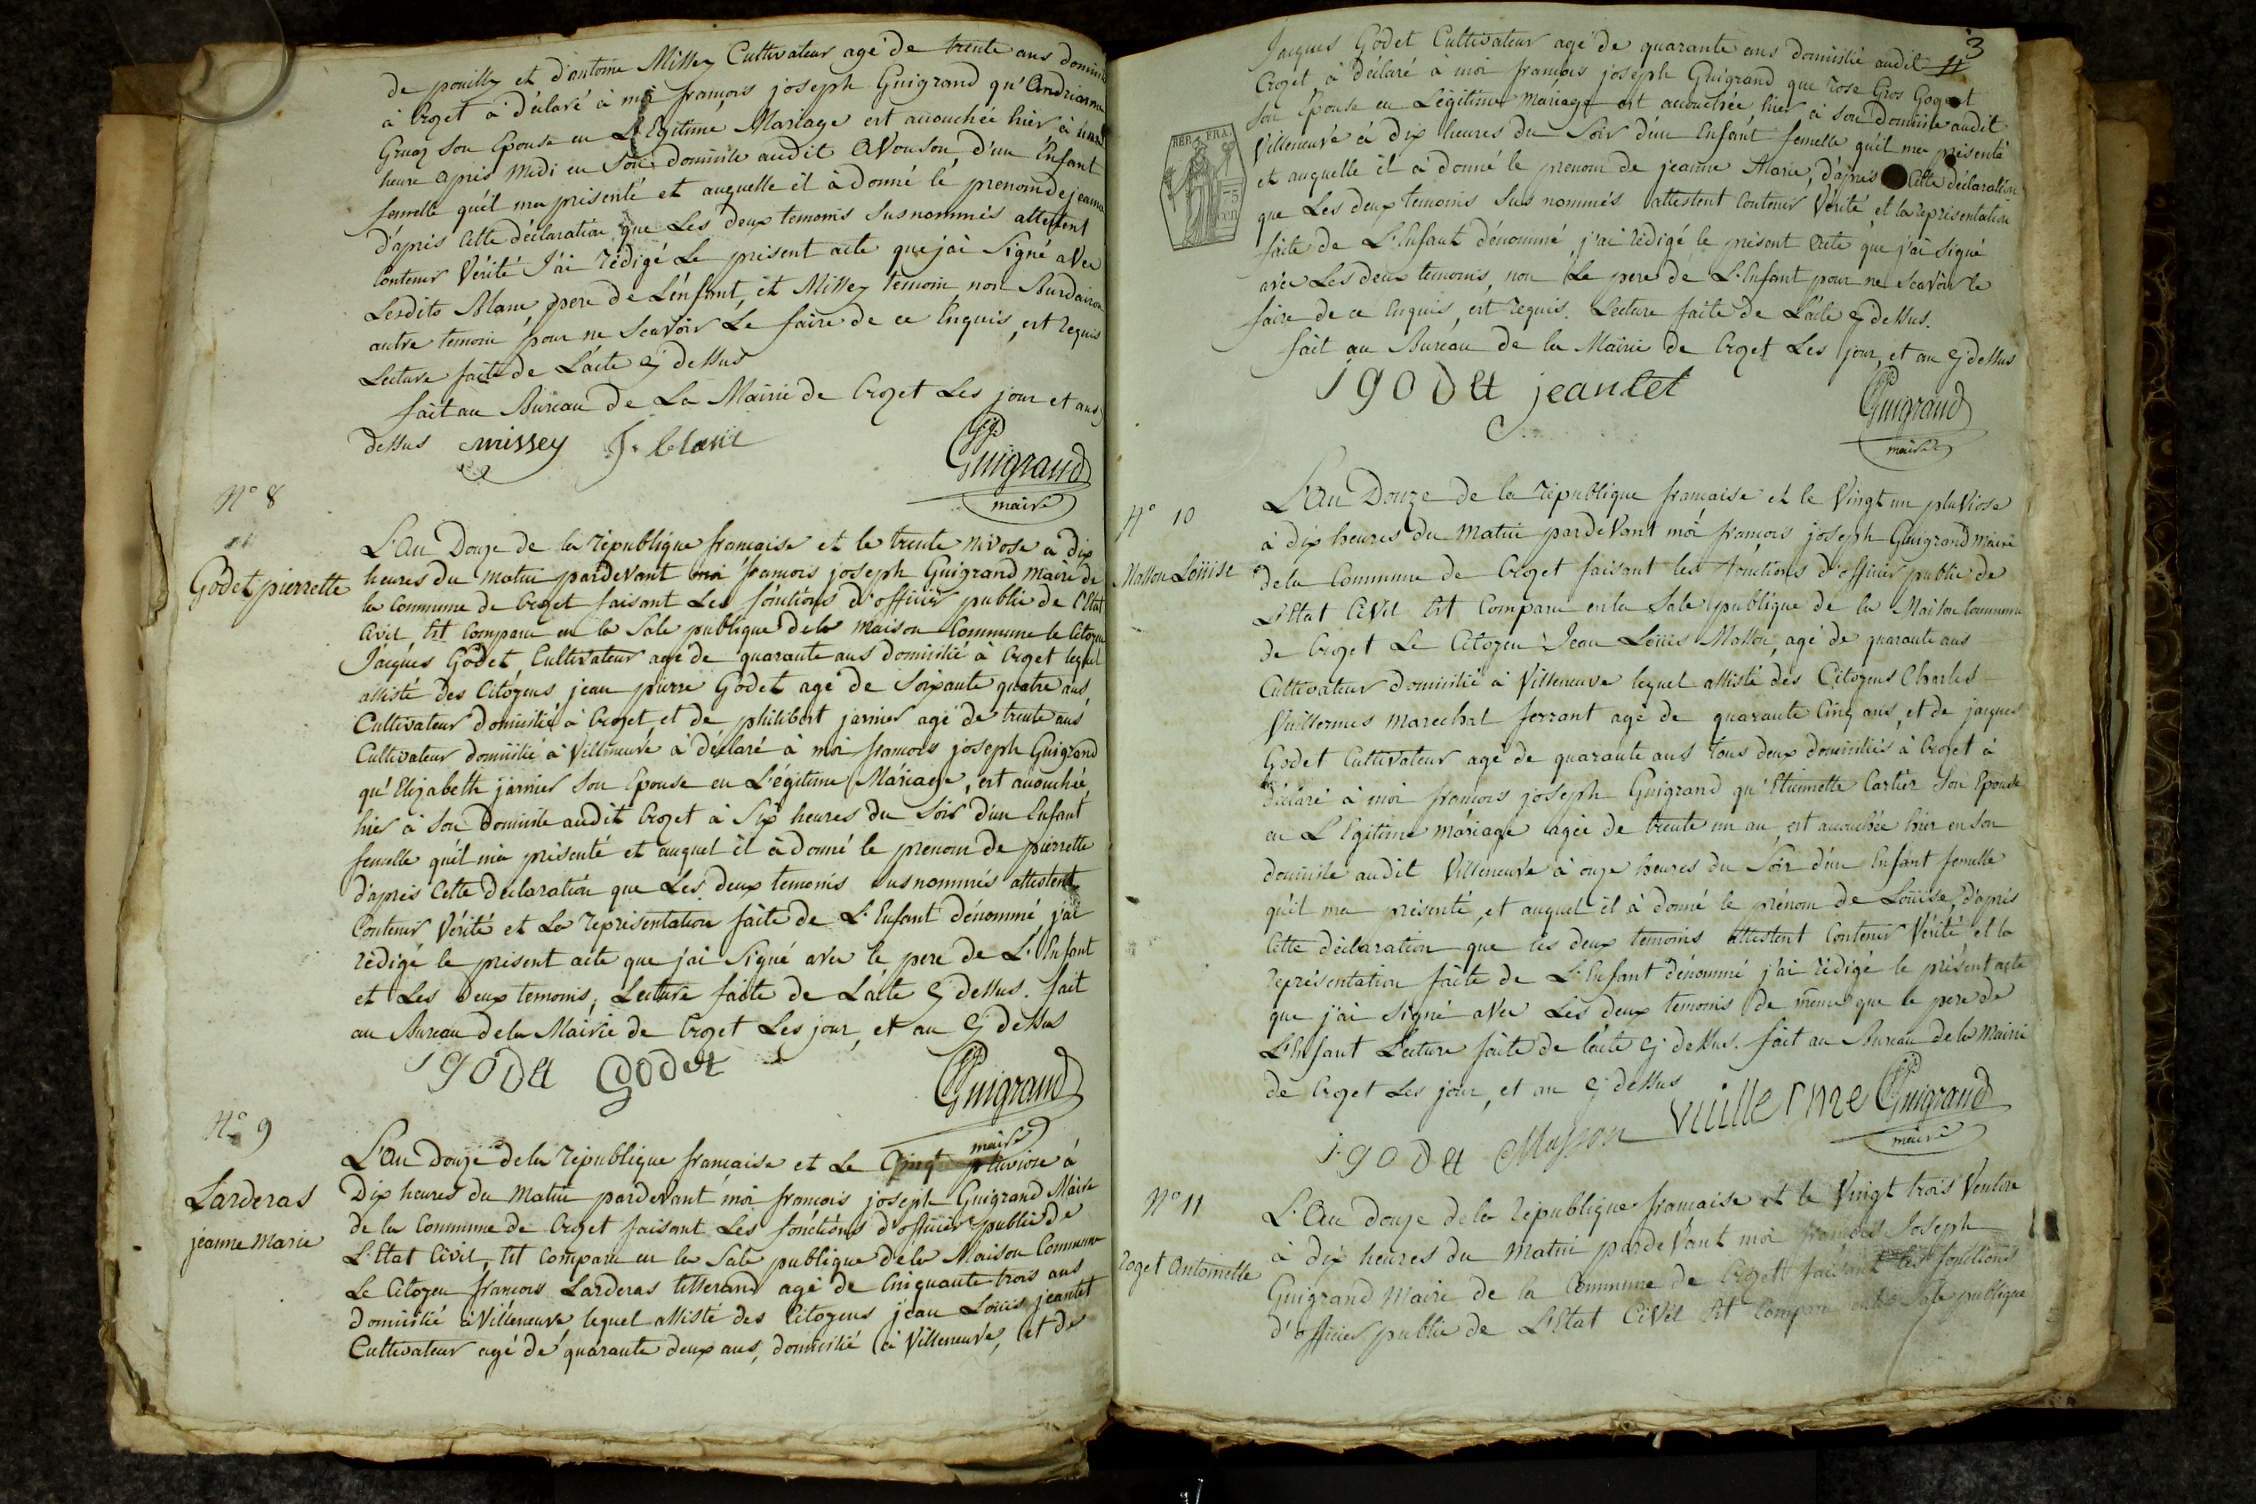 de pouilly et d'antoine Missey Cultivateur agé de trente ans domicilié
à Crozet à déclaré à moi françois joseph Guigrand qu'Andrianne
Gruaz son Epouse en Légitime Mariage est accouchée hier à une
heure après Midi en son domicile audit Avouson, d'un Enfant
femelle qu'il ma présenté et auquelle il à donné le prenom de jeanne
d'après Cette déclaration que Les deux temoins susnommés attestent
Contenir Vérité J'ai rédigé Le présent acte que jai Signé avec
Lesdits Blanc pere de L'énfant, et Missey temoin non Burdairon
autre temoin pour ne Scavoir Le faire de ce Enquis, et requis
Lecture faite de L'acte Cy dessus
fait au Bureau de La Mairie de Crozet Les jour et ans Cy
dessus missey J. blanc
Guigrand
maire
N° 8
Godet pierrette
L'An Douze de la république française et le trente nivose a dix
heures du matin pardevant moi françois joseph Guigrand maire de
la Commune de Crozet faisant Les fonctions d'officier public de l'Etat
Civil Est Comparu en la Sale publique dela maison Commune le Citoyen
Jacques Godet Cultivateur agé de quarante ans domicilié à Crozet lequel
assisté des Citoyens jean pierre Godet agé de Soixante quatre ans
Cultivateur domicilié à Crozet et de philibert janier agé de trente ans
Cultivateur domicilié à Villeneuve à déclaré à moi françois joseph Guigrand
qu'Elizabeth janier son Epouse en L'égitime Mariage, est accouchée
hier à son Domicile audit Crozet à Six heures du Soir d'un Enfant
femelle qu'il m'a présenté et auquel il à donné le prenom de pierrette
d'après Cette Déclaration que Les deux temoins susnommés attestent
Contenir Vérité et La représentation faite de L'Enfant dénommé j'ai
rédigé le présent acte que jai Signé avec le pere de L'Enfant
et Les deux temoins; Lecture faite de L'acte Cy dessus. fait
au Bureau dela Mairie de Crozet Les jour, et an Cy dessus
j godet Godet
Guigrand
maire
N° 9
Larderas
jeanne Marie
L'An Douze dela république française et Le Vingt pluviose à
Dix heures du Matin pardevant moi françois joseph Guigrand Maire
de la Commune de Crozet faisant Les fonctions d'officier public de
L'Etat Civil, Est Comparu en la Sale publique dela Maison Commune
Le Citoyen françois Larderas tisserand agé de Cinquante trois ans
domicilié à Villeneuve lequel assisté des Citoyens jean Loüis jeantet
Cultivateur agé de quarante deux ans, domicilié à Villeneuve, et de
3
Jacques Godet Cultivateur agé de quarante ans domicilié audit
Crozet à déclaré à moi françois joseph Guigrand que rose Gros Gogeat
son Epouse en Légitime mariage est accouchée hier à son Domicile audit
Villeneuve à dix heures du Soir d'un Enfant femelle qu'il ma présenté
et auquelle il à donné le prenom de jeanne Marie, d'après Cette déclaration
que Les deux temoins Sus nommés attestent Contenir Vérité et la représentation
faite de L'Enfant dénommé, j'ai rédigé le présent acte que j'ai Signé
avec Les deux temoins, non Le pere de L'Enfant pour ne Scavoir le
faire de ce Enquis, et requis. Lecture faite de L'acte Cy dessus.
fait au Bureau de la Mairie de Crozet Les jour, et an Cy dessus
REP. FRA.
75
CEN
j godet jeantet
Guigrand
maire
N° 10
Masson Loüise
L'An Douze de la république française et le Vingt un pluviose
à dix heures du matin pardevant moi françois joseph Guigrand maire
dela Commune de Crozet faisant les fonctions d'officier public de
L'Etat Civil Est Comparu en la Sale publique de la Maison Commune
de Crozet Le Citoyen Jean Loüis Masson, agé de quarante ans
Cultivateur domicilié à Villeneuve lequel assisté des Citoyens Charles
Vuillermes marechal ferrant agé de quarante Cinq ans, et de jacques
Godet Cultivateur agé de quarante ans tous deux domiciliés à Crozet à
déclaré à moi françois joseph Guigrand qu'Etiennette Cartier Son Epouse
en L'Egitime mariage agée de trente un an, est accouchée hier en son
domicile audit Villeneuve à onze heures du Soir d'un Enfant femelle
qu'il ma présenté, et auquel il à donné le prénom de Loüise, d'après
Cette déclaration que les deux temoins attestent Contenir Vérité et la
représentation faite de L'Enfant dénommé j'ai rédigé le présent acte
que j'ai Signé avec Les deux temoins de même que le pere de
L'Enfant Lecture faite de l'acte Cy dessus. fait au Bureau dela Mairie
de Crozet Les jour, et an Cy dessus
j godet Masson Vuillerme Guigrand
maire
N° 11
roget Antoinette
L'An douze dela république française et le Vingt trois Ventose
à dix heures du Matin pardevant moi françois Joseph
Guigrand Maire de la Commune de Crozet faisant les fonctions
d'officier public de L'Etat Civil Est Comparu en la Sale publique